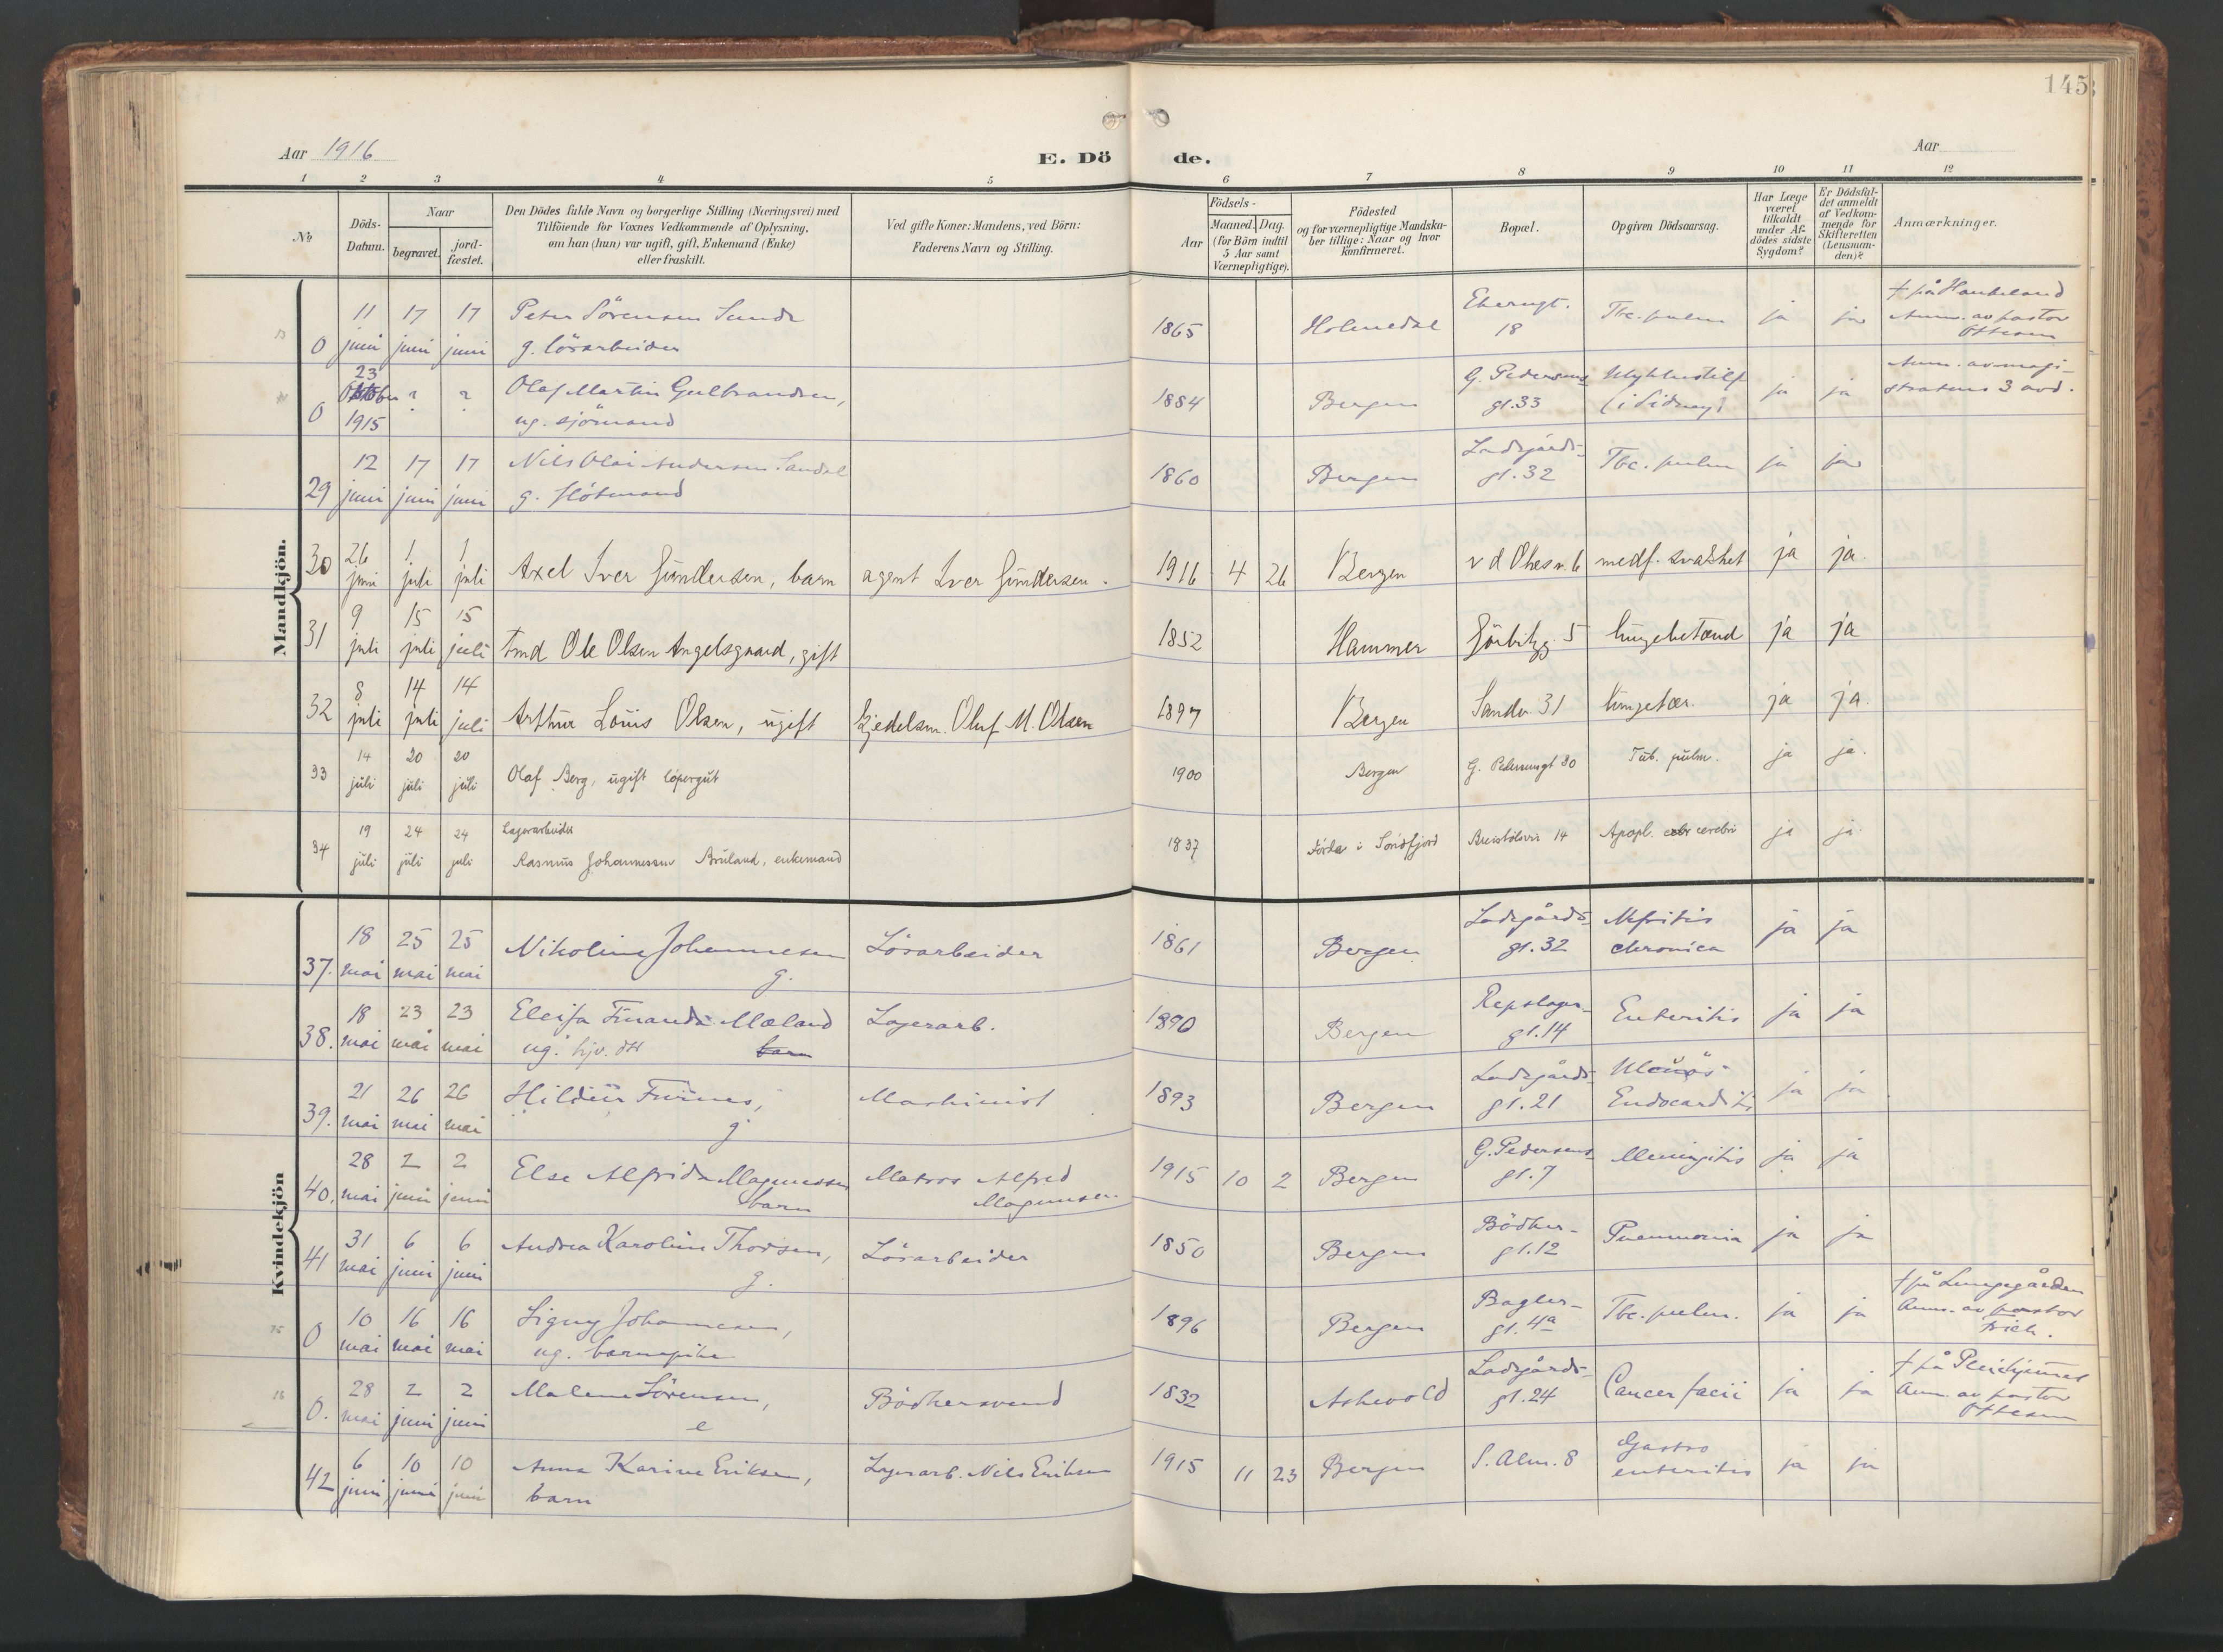 145
Aar 1916
E. Dö de.
Aar
1 2 3 4 5 6 7 8 9 10 11 12
№
Döds-Datum.
Naar
begravet.
jord-fæstet.
Den Dödes fulde Navn og borgerlige Stilling (Næringsvei) med
Tilföiende for Voxnes Vedkommende af Oplysning,
om han (hun) var ugift, gift, Enkemand (Enke)
eller fraskilt.
Ved gifte Koner: Mandens, ved Börn:
Faderens Navn og Stilling.
Födsels-
Aar
Maaned. Dag.
(for Börn indtil
5 Aar samt
Værnepligtige).
Födested
og for værnepligtige Mandska-
ber tillige: Naar og hvor
konfirmeret.
Bopæl.
Opgiven Dödsaarsag.
Har Læge
været
tilkaldt
under Af-
dödes sidste
Sygdom?
Er Dödsfal-
det anmeldt
af Vedkom-
mende for
Skifteretten
(Lensman-
den)?
Anmærkninger.
Mandkjön.
0 11 juni 17 juni 17 juni Peter Sörensen Sunde 1865 Holmedal 18 Tbc. pulm ja ja † på Haukeland
g. lösarbeider Anm. av pastor
Ottesen
0 23 Oktober 1915 ? ? Olaf Martin Gulbrandsen, 1884 Bergen G. Pedersens gt. 33 Ulykkestilf (i Sidney) ja ja Anm. av magi-
ug. sjömand stratens 3 avd.
29 12 juni 17 juni 17 juni Nils Olai Andersen Sandal 1860 Bergen Ladegårds-gt. 32 Tbc. pulm ja ja
g. flötmand
30 26 juni 1 juli 1 juli Axel Iver Gundersen, barn agent Iver Gundersen. 1916 4 26 Bergen medf. svakhet ja ja.
31 9 juli 15 juli 15 juli Ole Olsen Angelsgaard, gift 1852 Hammer 5 lungebetænd ja ja
32 8 juli 14 juli 14 juli Arthur Louis Olsen, ugift Kjedelsm. Oluf M. Olsen 1897 Bergen Sandv. 31 lungetær. ja ja.
33 14 juli 20 juli 20 juli Olaf Berg, ugift löpergut 1900 Bergen G. Pedersensgt 30 Tub. pulm. ja ja.
34 19 juli 24 juli 24 juli Lagerarbeider
Rasmus Johannessen Bruland, enkemand 1837 Förde i Söndfjord Breistölsvei 14 Apopl. cerebri ja ja
Kvindekjön
37. 18 mai 25 mai 25 mai Nikoline Johannesen Lösarbeider 1861 Bergen Ladegårds-gt. 32 Nefritis chronica ja ja
g.
38. 18 mai 23 mai 23 mai Elisa Finanda Mæland Lagerarb. 1890 Bergen Repslager-gt. 14 Enteritis ja ja
ug. hjv. dtr barn
39. 21 mai 26 mai 26 mai Furnes, Maskinist 1893 Bergen Ladegårds-gt. 21 Ulcerös-Endocarditis ja ja
g
40. 28 mai 2 juni 2 juni Else Alfrida Magnussen Matros Alfred 1915 10 2 Bergen G. Pedersens-gt. 7 Meningitis ja ja
barn Magnussen.
41 31 mai 6 juni 6 juni Andrea Karoline Thorsen, Lösarbeider 1850 Bergen Bödker-gt. 12 Pneumonia ja ja
g.
0 10 mai 16 mai 16 mai Signy Johannesen, 1896 Bergen Bagler-gt. 4a Tbc. pulm. ja ja † på Lungegården
ug. barnepike Anm. av pastor
Frich.
0. 28 mai 2 juni 2 juni Malene Sörensen, Bödkersvend 1832 Askevold Ladegårds-gt. 24 Cancer facii ja ja † på Pleiehjemmet
e Anm. av pastor
Ottesen
42 6 juni 10 juni 10 juni Anna Karine Eriksen, Lagerarb. Nils Eriksen 1915 11 23 Bergen S. Alm. 8 Gastro enteritis ja ja
barn